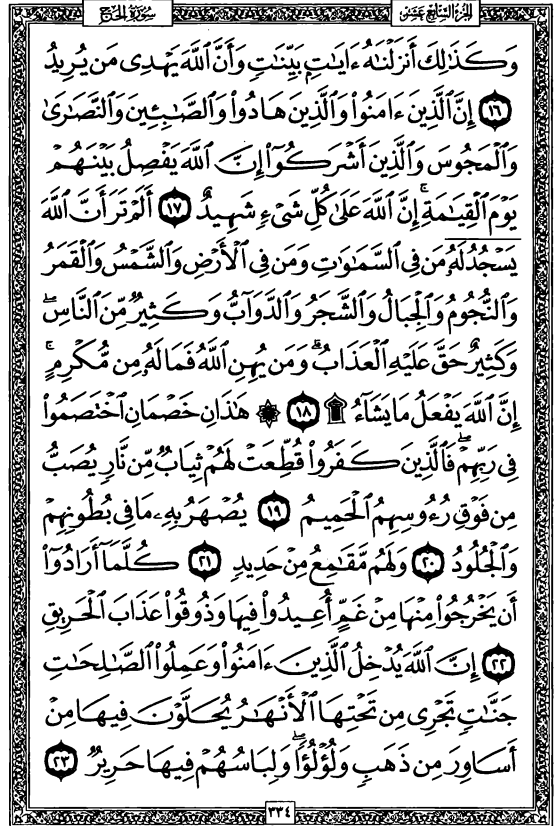 سُورَةُ الحَجِّ الجزء السابع عشر
وَكَذَٰلِكَ أَنزَلْنَٰهُ ءَايَٰتٍۭ بَيِّنَٰتٍ وَأَنَّ ٱللَّهَ يَهْدِى مَن يُرِيدُ
١٦ إِنَّ ٱلَّذِينَ ءَامَنُوا۟ وَٱلَّذِينَ هَادُوا۟ وَٱلصَّٰبِـِٔينَ وَٱلنَّصَٰرَىٰ
وَٱلْمَجُوسَ وَٱلَّذِينَ أَشْرَكُوٓا۟ إِنَّ ٱللَّهَ يَفْصِلُ بَيْنَهُمْ
يَوْمَ ٱلْقِيَٰمَةِ ۚ إِنَّ ٱللَّهَ عَلَىٰ كُلِّ شَىْءٍ شَهِيدٌ ١٧ أَلَمْ تَرَ أَنَّ ٱللَّهَ
يَسْجُدُ لَهُۥ مَن فِى ٱلسَّمَٰوَٰتِ وَمَن فِى ٱلْأَرْضِ وَٱلشَّمْسُ وَٱلْقَمَرُ
وَٱلنُّجُومُ وَٱلْجِبَالُ وَٱلشَّجَرُ وَٱلدَّوَآبُّ وَكَثِيرٌ مِّنَ ٱلنَّاسِ ۖ
وَكَثِيرٌ حَقَّ عَلَيْهِ ٱلْعَذَابُ ۗ وَمَن يُهِنِ ٱللَّهُ فَمَا لَهُۥ مِن مُّكْرِمٍ ۚ
إِنَّ ٱللَّهَ يَفْعَلُ مَا يَشَآءُ ۩ ١٨ ۞ هَٰذَانِ خَصْمَانِ ٱخْتَصَمُوا۟
فِى رَبِّهِمْ ۖ فَٱلَّذِينَ كَفَرُوا۟ قُطِّعَتْ لَهُمْ ثِيَابٌ مِّن نَّارٍ يُصَبُّ
مِن فَوْقِ رُءُوسِهِمُ ٱلْحَمِيمُ ١٩ يُصْهَرُ بِهِۦ مَا فِى بُطُونِهِمْ
وَٱلْجُلُودُ ٢٠ وَلَهُم مَّقَٰمِعُ مِنْ حَدِيدٍ ٢١ كُلَّمَآ أَرَادُوٓا۟
أَن يَخْرُجُوا۟ مِنْهَا مِنْ غَمٍّ أُعِيدُوا۟ فِيهَا وَذُوقُوا۟ عَذَابَ ٱلْحَرِيقِ
٢٢ إِنَّ ٱللَّهَ يُدْخِلُ ٱلَّذِينَ ءَامَنُوا۟ وَعَمِلُوا۟ ٱلصَّٰلِحَٰتِ
جَنَّٰتٍ تَجْرِى مِن تَحْتِهَا ٱلْأَنْهَٰرُ يُحَلَّوْنَ فِيهَا مِنْ
أَسَاوِرَ مِن ذَهَبٍ وَلُؤْلُؤًا ۖ وَلِبَاسُهُمْ فِيهَا حَرِيرٌ ٢٣
٣٣٤